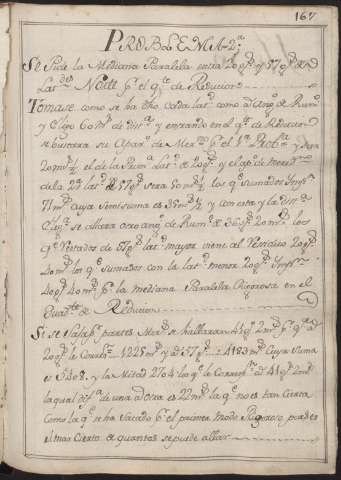 167
PROBLEMA 2ª
Se Pide la Mediana Paralela entre 20 g.s y 57 g.s de
Lat.des Norte p.r el q.te de Reduccion
Tomase como se ha dho Cada lat.d como Ang.o de Rum.o
y Elijo 60 M.s de dis.a y entrando en el q.te de Reducion
se buscara su Apar.o de Mer.no p.r el 1.r Prob.ma y sera
20 m.s ½ el de la Prim.a Lat.d de 20 g.s y el ap.o de merid.no
de la 2ª lat.d de 57 g.s sera 50 m.s ½ los q.e sumados Imp.n
71 m.s cuya Semisuma es 35 m.s ½ y con esta y la dis.a
se allara otro ang.o de Rum.o de 36 g.s 20 m.s los
q.e Restados de 57 g.s lat.d mayor viene al Residuo 20 g.s
40 m.s los q.e sumados con la lat.d menor 20 g.s Imp.n
40 g.s 40 m.s p.r la mediana Paralela Rigorosa en el
Quad.te de Reducion
Si se usa p.r partes Mer.s se hallaran 41 g.s 2 m.s p.r q.e a
20 g.s le Corresp.n 1225 m.s y a 57 g.s : 4183 m.s Cuya Suma
es 5408. y la Mitad 2704 la q.e le Corresp.n a 41 g.s 2 m.s
la qual dif.a de una a otra es 22 m.s la q.e no es tan Cierta
Como la q.e se ha Sacado p.r el primer modo Rigoroso pues es
el mas Cierto de quantos se puede allar